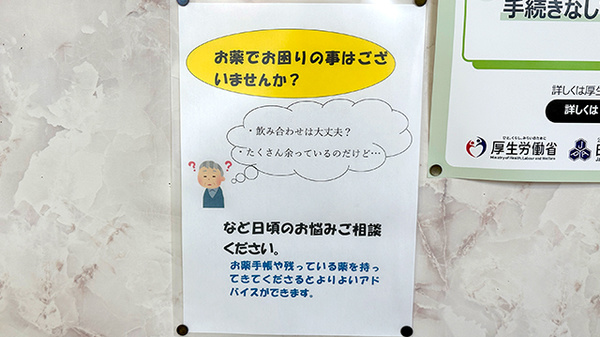 お薬でお困りの事はござ
いませんか？
・飲み合わせは大丈夫？
・たくさん余っているのだけど…
? ?
など日頃のお悩みご相談
ください。
お薬手帳や残っている薬を持っ
てきてくださるとよりよいアド
バイスができます。
手続きなし
詳しくは厚生
詳しくは
ひと、くらし、みらいのために
厚生労働省
Ministry of Health, Labour and Welfare